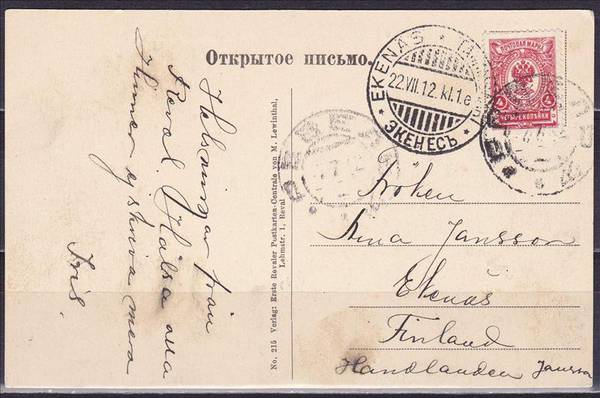 Открытое письмо.
Helsningar från
Reval. Hälsa alla
Hinner ej skriva mera
Iris.
No. 215 Verlag: Erste Revaler Postkarten-Centrale von M. Lewinthal,
Lehmstr. 1, Reval
EKENÄS
22.VII.12. kl.1.e
ЭКЕНЕСЪ
ПОЧТОВАЯ МАРКА
4 4
ЧЕТЫРЕ КОПѢЙКИ
Fröken
Jansson
Ekenäs
Finland
Handlanden Jansson